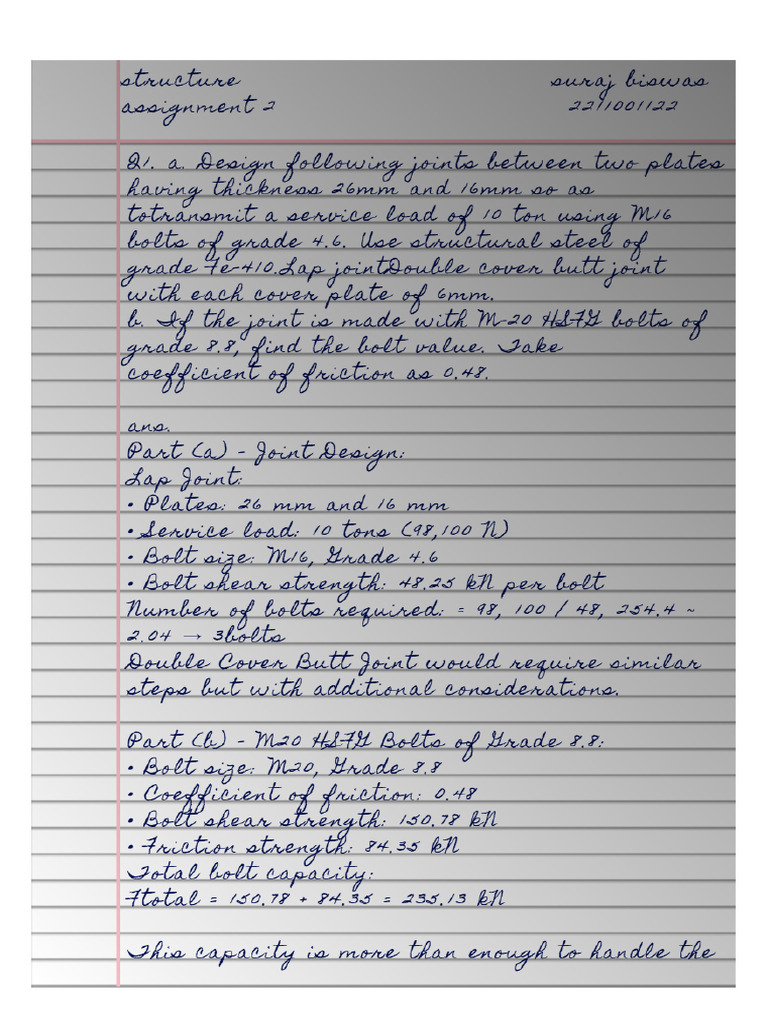 structure suraj biswas
assignment 2 2211001122
Q1. a. Design following joints between two plates
having thickness 26mm and 16mm so as
totransmit a service load of 10 ton using M16
bolts of grade 4.6. Use structural steel of
grade Fe-410.Lap jointDouble cover butt joint
with each cover plate of 6mm.
b. If the joint is made with M-20 HSFG bolts of
grade 8.8, find the bolt value. Take
coefficient of friction as 0.48.
ans.
Part (a) - Joint Design:
Lap Joint:
• Plates: 26 mm and 16 mm
• Service load: 10 tons (98,100 N)
• Bolt size: M16, Grade 4.6
• Bolt shear strength: 48.25 kN per bolt
Number of bolts required: = 98, 100 / 48, 254.4 ~
2.04 → 3bolts
Double Cover Butt Joint would require similar
steps but with additional considerations.
Part (b) - M20 HSFG Bolts of Grade 8.8:
• Bolt size: M20, Grade 8.8
• Coefficient of friction: 0.48
• Bolt shear strength: 150.78 kN
• Friction strength: 84.35 kN
Total bolt capacity:
Ftotal = 150.78 + 84.35 = 235.13 kN
This capacity is more than enough to handle the